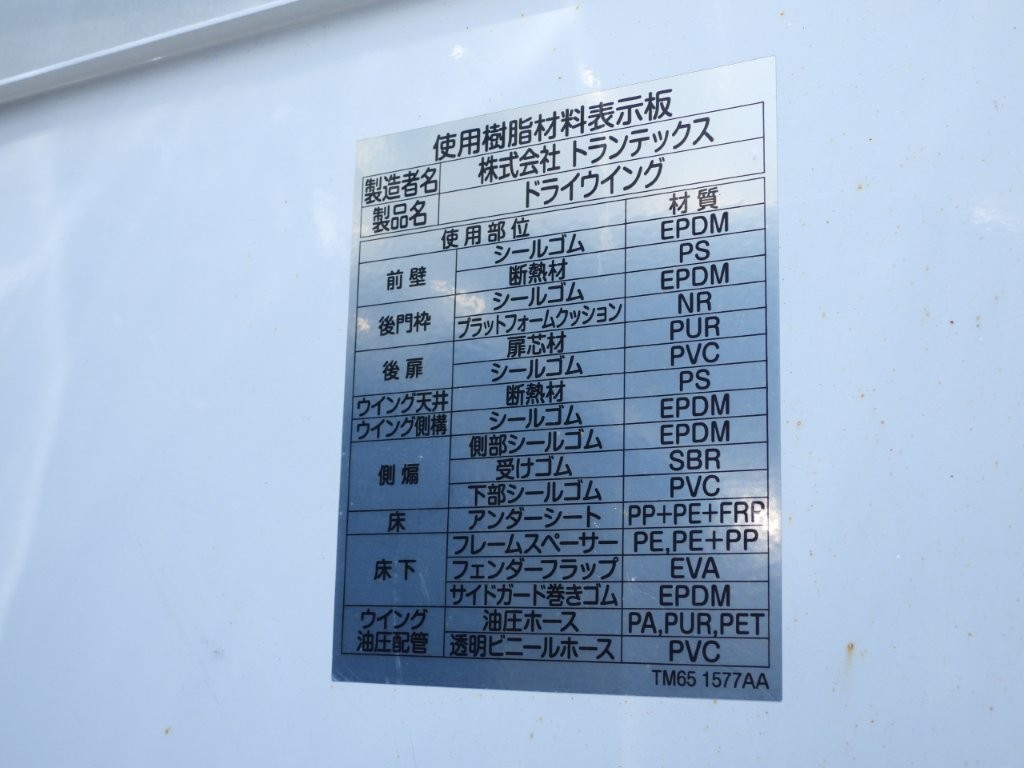 使用樹脂材料表示板
製造者名 株式会社 トランテックス
製品名 ドライウイング
使用部位 材質
前壁 シールゴム EPDM
断熱材 PS
後門枠 シールゴム EPDM
プラットフォームクッション NR
後扉 扉芯材 PUR
シールゴム PVC
ウイング天井 断熱材 PS
ウイング側構 シールゴム EPDM
側煽 側部シールゴム EPDM
受けゴム SBR
下部シールゴム PVC
床 アンダーシート PP+PE+FRP
床下 フレームスペーサー PE,PE+PP
フェンダーフラップ EVA
サイドガード巻きゴム EPDM
ウイング油圧配管 油圧ホース PA,PUR,PET
透明ビニールホース PVC
TM65 1577AA